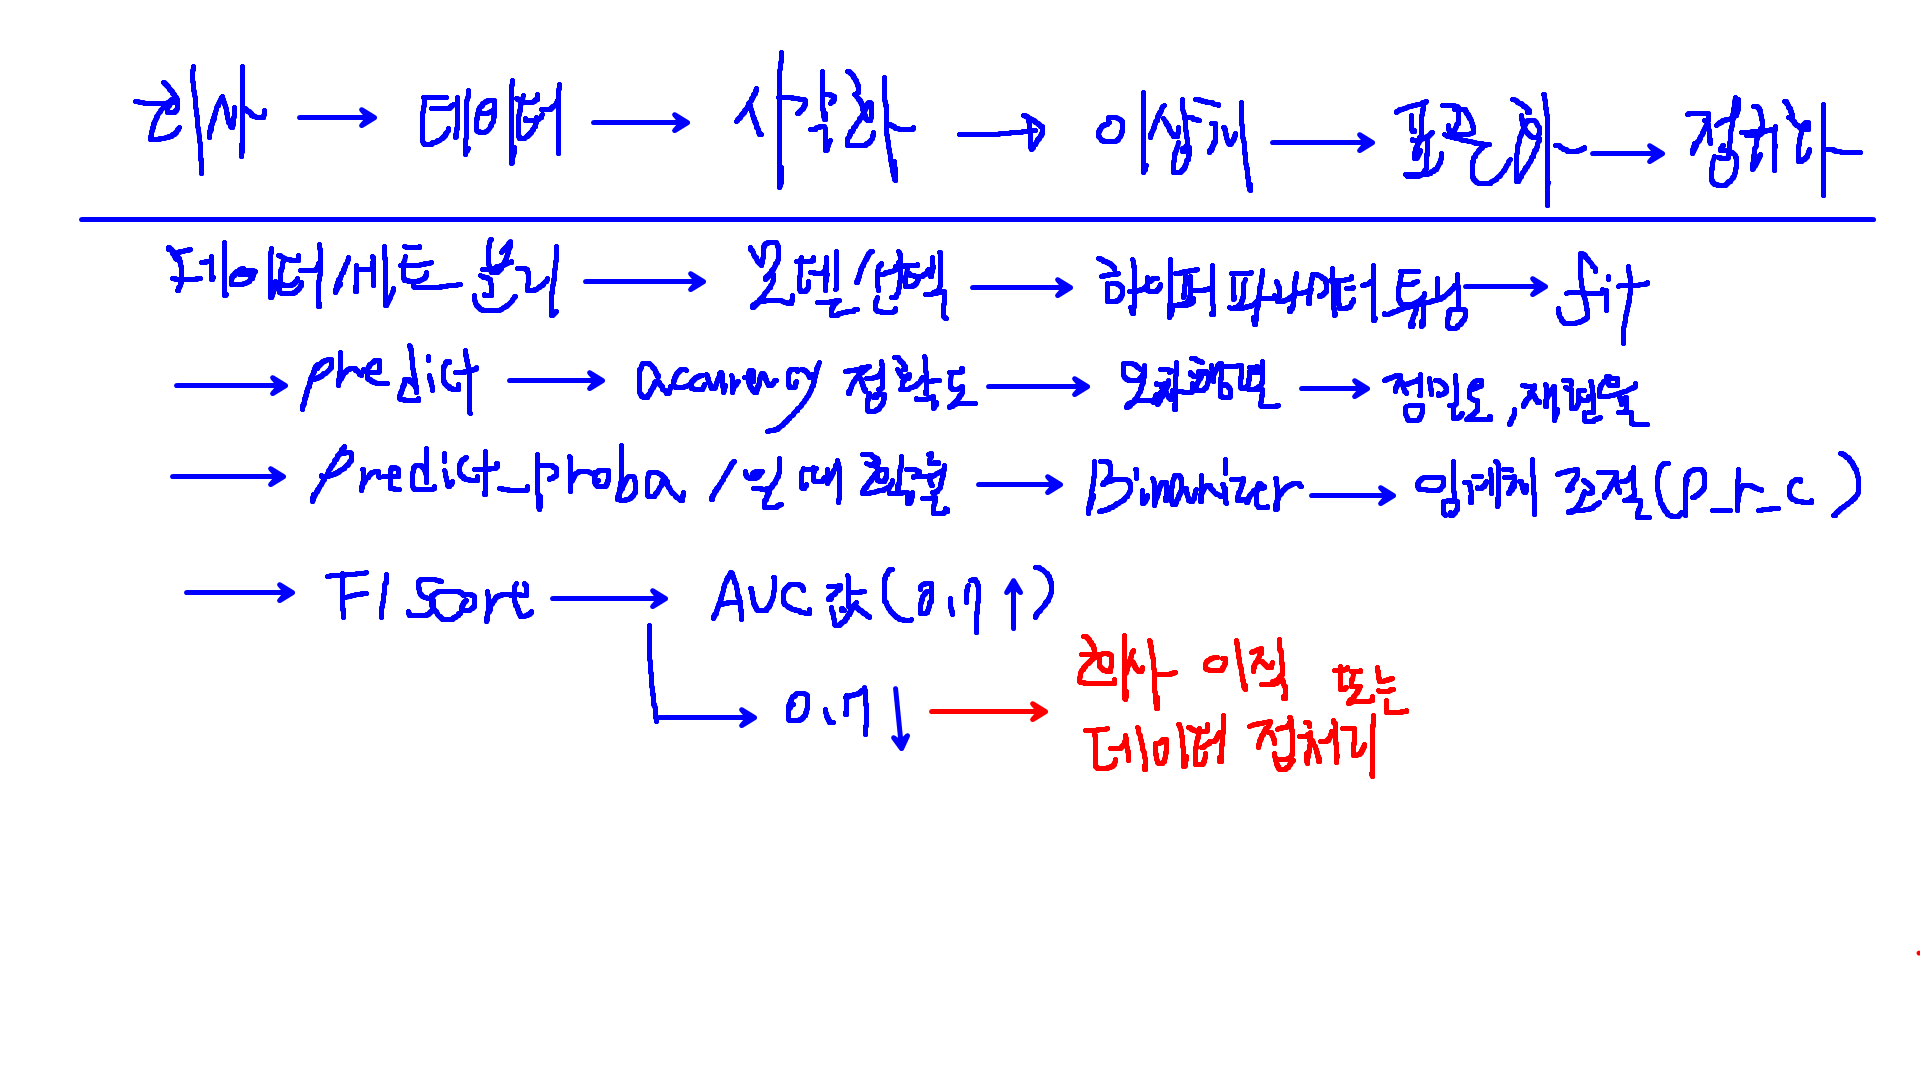 회사 → 데이터 → 시각화 → 이상치 → 표준화 → 정규화
데이터세트 분리 → 모델선택 → 하이퍼파라미터 튜닝 → fit
→ predict → accuracy 정확도 → 오차행렬 → 정밀도, 재현율
→ predict_proba / 일 때 확률 → Binarizer → 임계치 조절(p_r_c)
→ F1 Score → AUC 값(0.7↑)
→ 0.7↓ → 회사 이직 또는
데이터 전처리